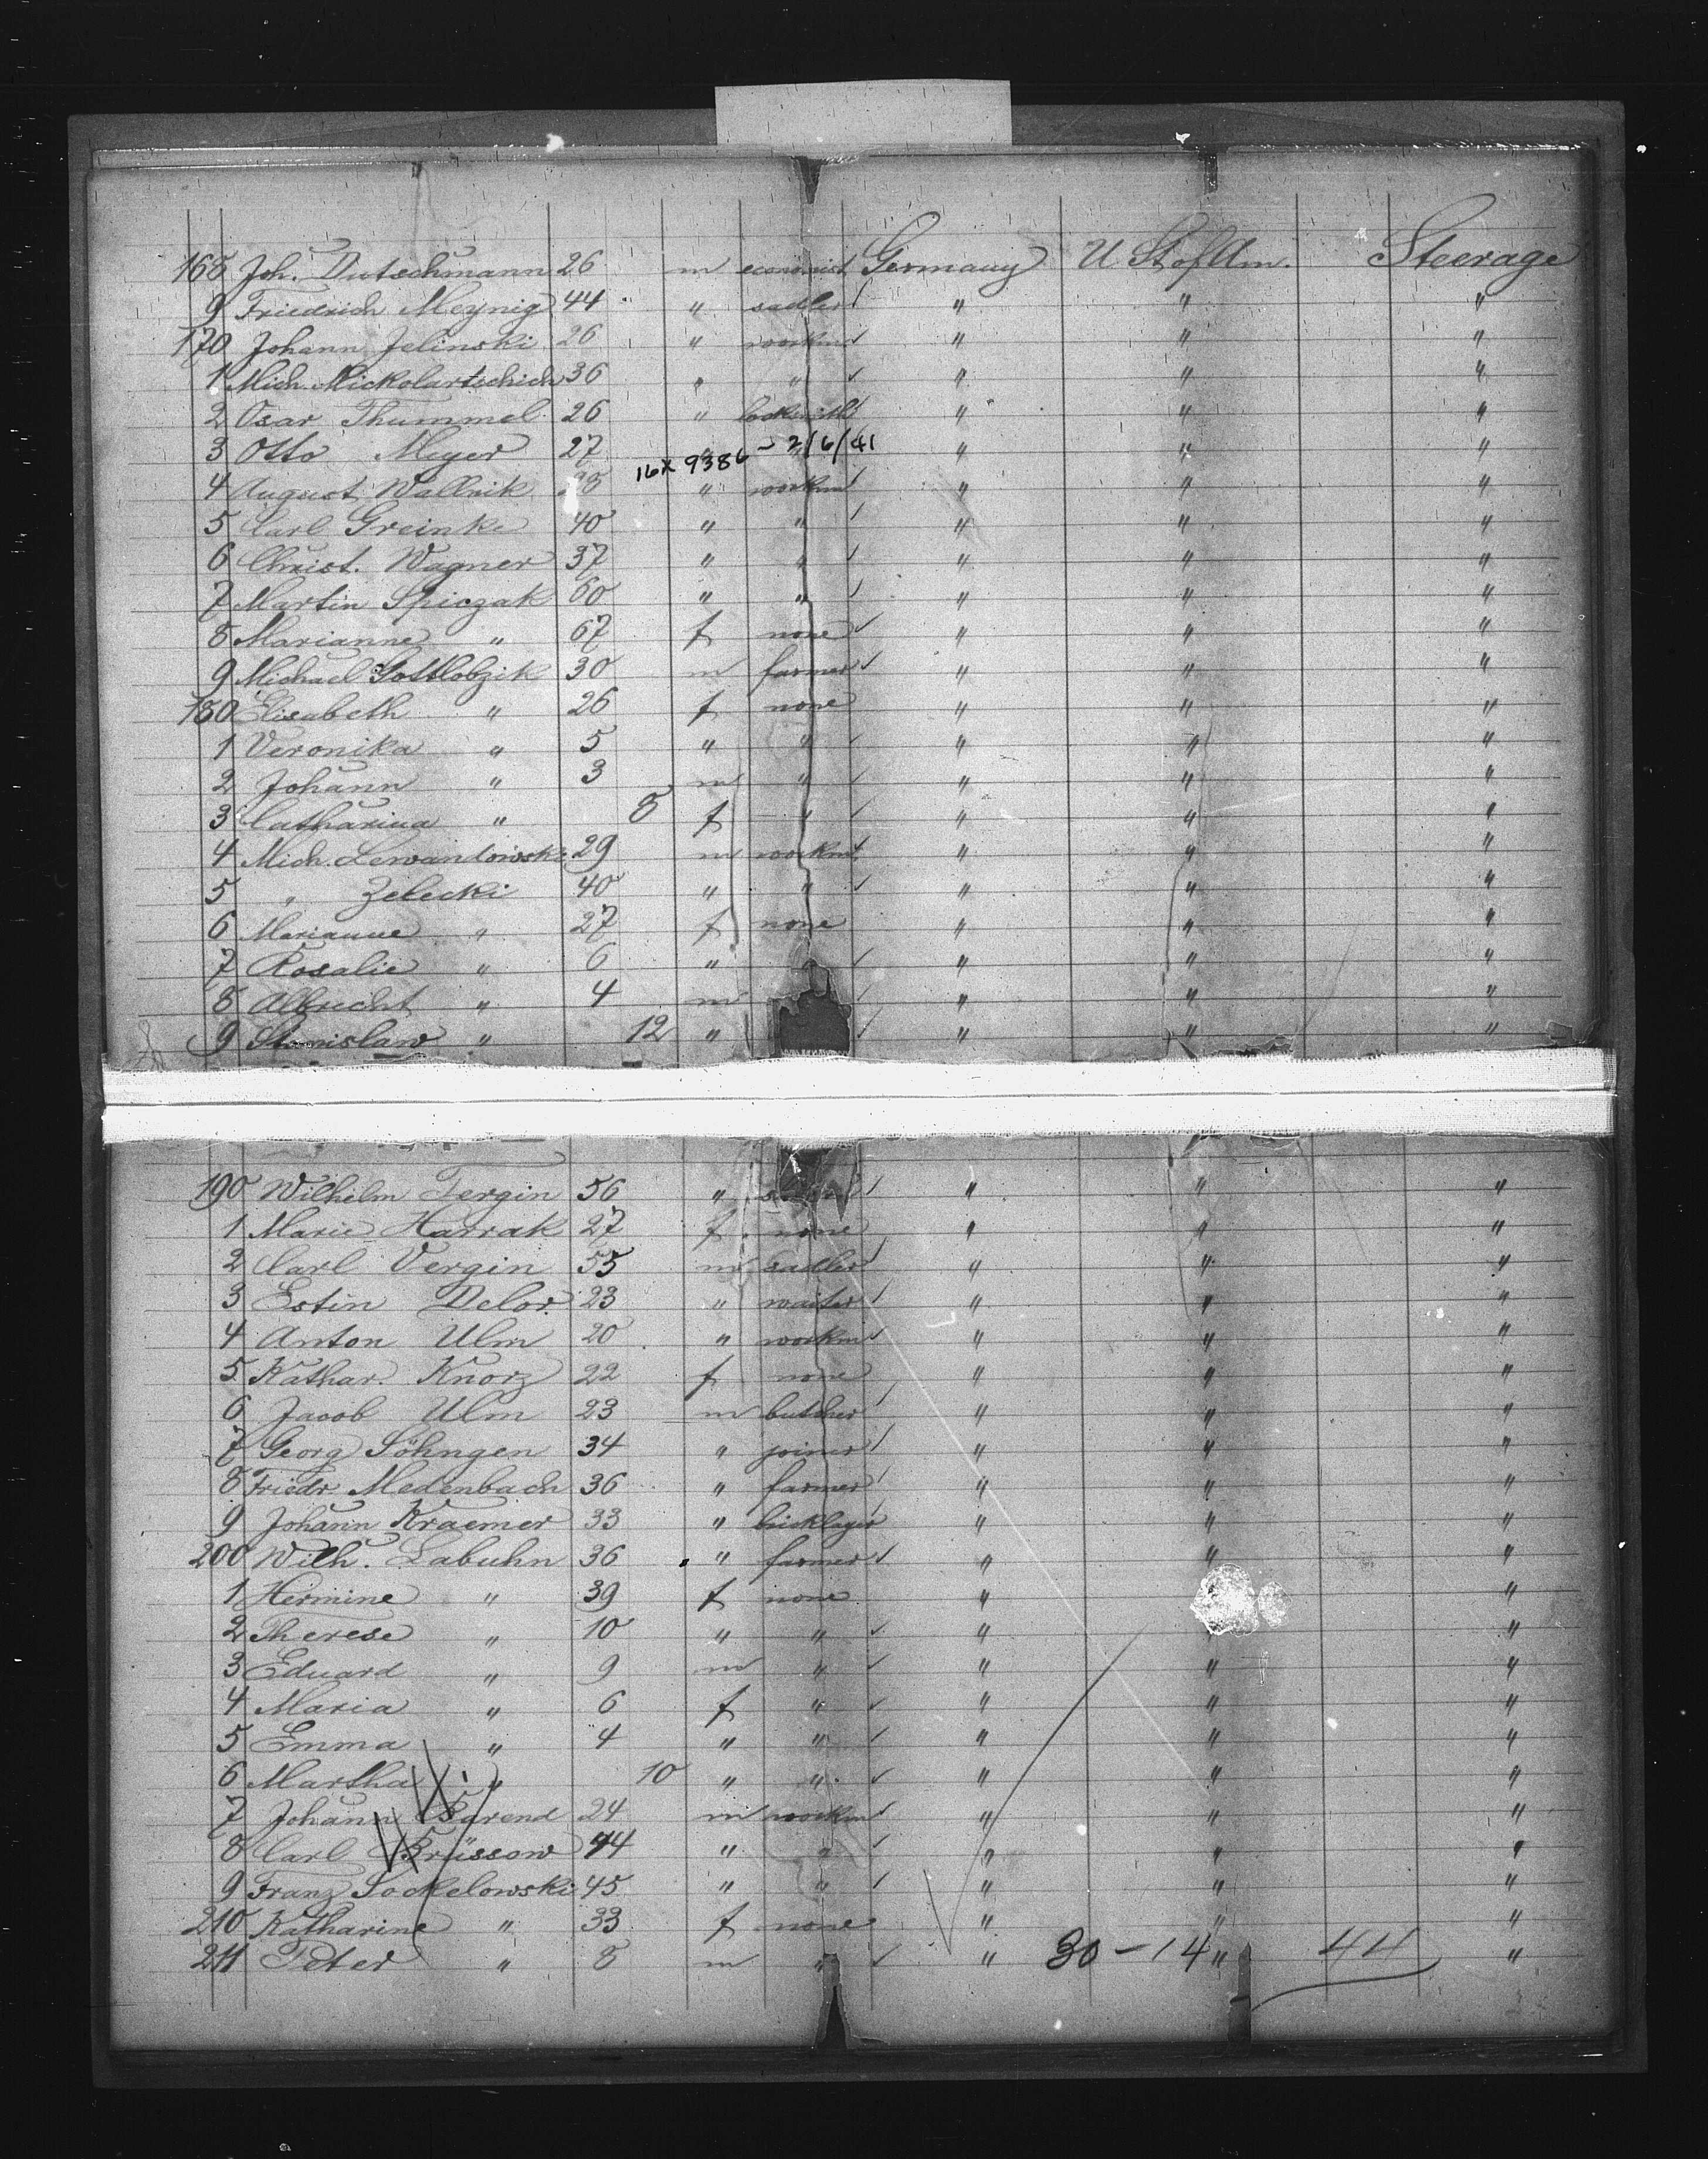 168 Joh. Dutschmann 26 m economist Germany U St of Am. Steerage
9 Friedrich Meynig 44 " sadler " " "
170 Johann Jelinski 26 " workm " " "
1 Mich. Mickolartschick 36 " " " " "
2 Osar Thummel 26 " locksmith " " "
3 Otto Meyer 27 16x 9386 - 2/6/41 " " "
4 August Wallnik 28 " workm " " "
5 Carl Greinke 40 " " " " "
6 Christ. Wagner 37 " " " " "
7 Martin Spiczak 60 " " " " "
8 Marianne " 67 f none " " "
9 Michael Gottlobzik 30 m farmer " " "
180 Elisabeth " 26 f none " " "
1 Veronika " 5 " " " " "
2 Johann " 3 m " " " "
3 Catharina " 8 f " " " "
4 Mich. Lewandowski 29 m workm " " "
5 " Zelecki 40 " " " " "
6 Marianne " 27 f none " " "
7 Rosalie " 6 " " " "
8 Albrecht " 4 m " " "
9 Stanislaw " 12 " " " "
190 Wilhelm Tergin 56 " " " "
1 Marie Harrak 27 f none " " "
2 Carl Vergin 55 m sadler " " "
3 Estin Delor 23 " waiter " " "
4 Anton Ulm 20 " workm " " "
5 Kathar. Knorz 22 f none " " "
6 Jacob Ulm 23 m butcher " " "
7 Georg Söhngen 34 " joiner " " "
8 Friedr. Medenbach 36 " farmer " " "
9 Johann Kraemer 33 " bricklayer " " "
200 Wilh. Labuhn 36 " farmer " " "
1 Hermine " 39 f none " "
2 Therese " 10 " " " " "
3 Eduard " 9 m " " " "
4 Maria " 6 f " " " "
5 Emma " 4 " " " " "
6 Martha " 10 " " " " "
7 Johann Barend 24 m workm " " "
8 Carl Brüssow 44 " " " " "
9 Franz Sockelowski 45 " " " " "
210 Katharine " 33 f none " " "
211 Peter " 8 m " " 30-14 " 44 "